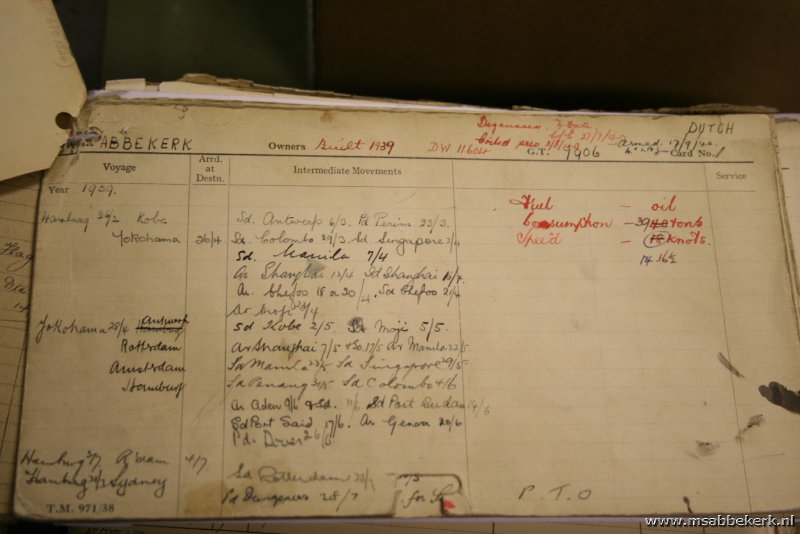 Degaussed & Coils
fitted prev 3/8/40
DUTCH
ABBEKERK
Owners Built 1939
DW 11604
G.T. 7906
Armed 17/9/40
Card No. 1
Voyage
Arrd. at Destn.
Intermediate Movements
Service
Year 1939.
Hamburg Kobe
Sd. Antwerp 6/3. Pd Perim 23/3.
Fuel - oil
Yokohama 26/4
Sd. Colombo 29/3. Sd. Singapore
Consumption - 39 40 tons
Sd. Manila 7/4
Speed - 18 knots.
14 16½
Ar Shanghai 12/4 Sd Shanghai
Ar. Chefoo 18 or 20/4. Sd Chefoo 21/4
Ar Moji 23/4
Yokohama 28/4 Hamburg Antwerp
Sd Kobe 2/5. Sd Moji 5/5.
Rotterdam
Ar Shanghai 7/5 Sd 17/5 Ar Manila 22/5
Amsterdam
Sd Manila 23/5 Sd Singapore 29/5
Hamburg
Sd Penang 31/5 Sd Colombo 4/6
Ar Aden 9/6 & Sd. 11/6 Sd Port Sudan 14/6
Sd Port Said 17/6. Ar Genoa 20/6
Pd. Dover 26/6
Hamburg R'dam 4/7
Hamburg Sydney
Sd Rotterdam
Pd Dungeness 28/7
for
P.T.O
T.M. 971/38
www.msabbekerk.nl